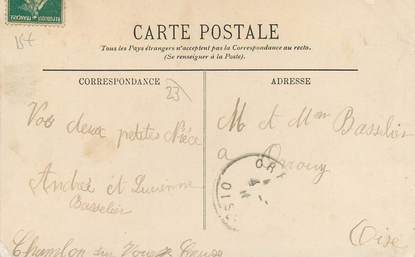 RÉPUBLIQUE FRANÇAISE
15f
CARTE POSTALE
Tous les Pays étrangers n'acceptent pas la Correspondance au recto.
(Se renseigner à la Poste).
CORRESPONDANCE
23
Vos deux petites Nièce
André et Lucienne
Basselier
ADRESSE
M et Mme Basselier
a Orrouy
Oise
OR
OIS